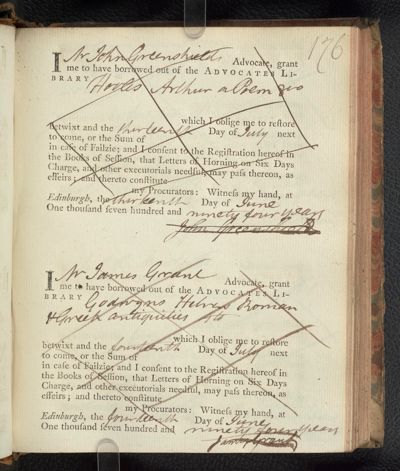 176
I Mr John Greenshields Advocate, grant
me to have borrowed out of the ADVOCATES LI-
BRARY Hooles Arthur a Poem
which I oblige me to restore
betwixt and the thirteenth Day of July next
to come, or the Sum of
in case of Failzie; and I consent to the Registration hereof in
the Books of Session, that Letters of Horning on Six Days
Charge, and other executorials needful, may pass thereon, as
effeirs; and thereto constitute
my Procurators: Witness my hand, at
Edinburgh, the thirteenth Day of June
One thousand seven hundred and ninety four years
John Greenshields
I Mr James Grant Advocate, grant
me to have borrowed out of the ADVOCATES LI-
BRARY Godwyns Hebrew Roman
& Greek antiquities
which I oblige me to restore
betwixt and the fourteenth Day of July next
to come, or the Sum of
in case of Failzie; and I consent to the Registration hereof in
the Books of Session, that Letters of Horning on Six Days
Charge, and other executorials needful, may pass thereon, as
effeirs; and thereto constitute
my Procurators: Witness my hand, at
Edinburgh, the fourteenth Day of June
One thousand seven hundred and ninety four years
James Grant